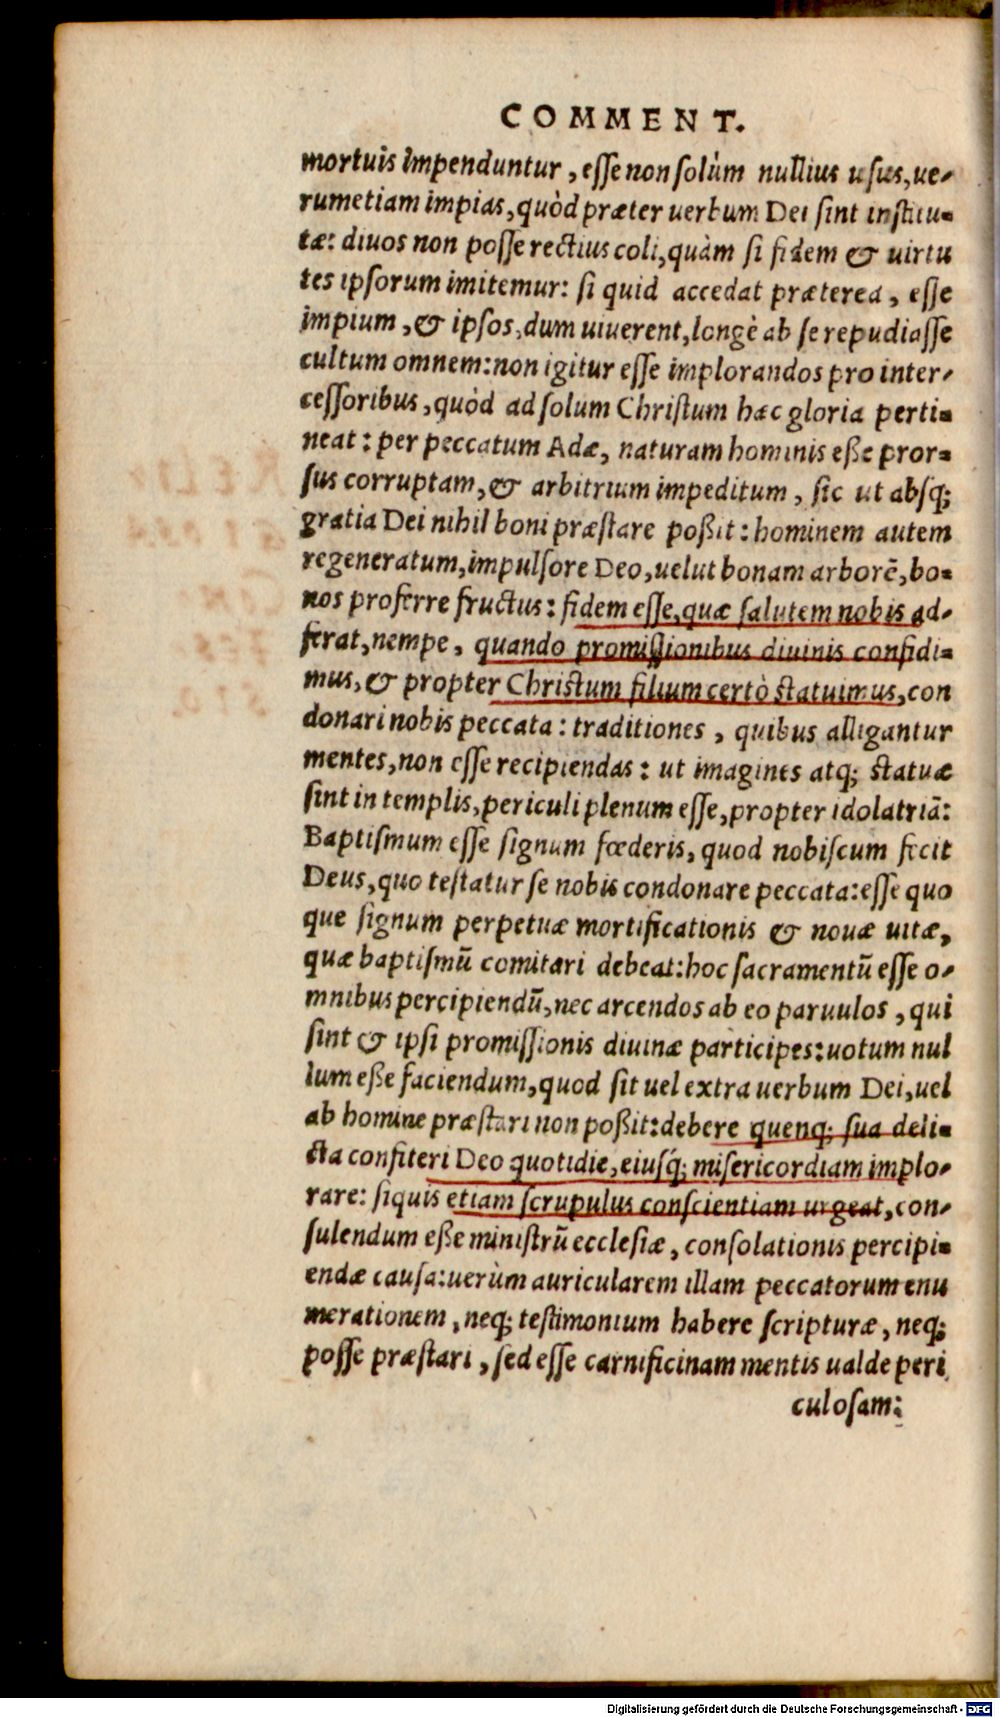 COMMENT.
mortuis impenduntur, esse non solùm nullius usus, ue-
rumetiam impias, quòd præter uerbum Dei sint institu-
tæ: diuos non posse rectius coli, quàm si fidem & uirtu
tes ipsorum imitemur: si quid accedat præterea, esse
impium, & ipsos, dum uiuerent, longè ab se repudiasse
cultum omnem: non igitur esse implorandos pro inter-
cessoribus, quòd ad solum Christum hæc gloria perti-
neat: per peccatum Adæ, naturam hominis eße pror-
sus corruptam, & arbitrium impeditum, sic ut absq;
gratia Dei nihil boni præstare poßit: hominem autem
regeneratum, impulsore Deo, uelut bonam arborē, bo-
nos proferre fructus: fidem esse, quæ salutem nobis ad-
ferat, nempe, quando promissionibus diuinis confidi-
mus, & propter Christum filium certò statuimus, con
donari nobis peccata: traditiones, quibus alligantur
mentes, non esse recipiendas: ut imagines atq; statuæ
sint in templis, periculi plenum esse, propter idolatriā:
Baptismum esse signum fœderis, quod nobiscum fecit
Deus, quo testatur se nobis condonare peccata: esse quo
que signum perpetuæ mortificationis & nouæ uitæ,
quæ baptismū comitari debeat: hoc sacramentū esse o-
mnibus percipiendū, nec arcendos ab eo paruulos, qui
sint & ipsi promissionis diuinæ participes: uotum nul
lum eße faciendum, quod sit uel extra uerbum Dei, uel
ab homine præstari non poßit: debere quenq; sua deli-
cta confiteri Deo quotidie, eiusq́; misericordiam implo-
rare: siquis etiam scrupulus conscientiam urgeat, con-
sulendum eße ministrū ecclesiæ, consolationis percipi-
endæ causa: uerùm auricularem illam peccatorum enu
merationem, neq; testimonium habere scripturæ, neq;
posse præstari, sed esse carnificinam mentis ualde peri
culosam:
Digitalisierung gefördert durch die Deutsche Forschungsgemeinschaft - DFG